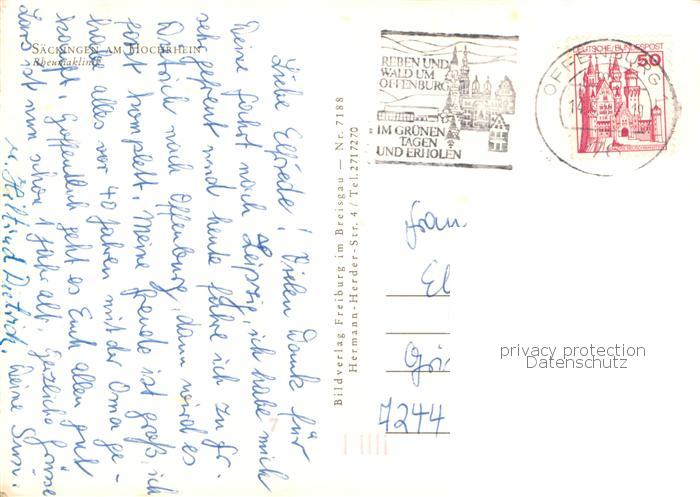 SÄCKINGEN AM HOCHRHEIN
Rheumaklinik
Liebe Elfriede! Vielen Dank für
Deine Fahrt nach Leipzig, ich habe mich
sehr gefreut und heute fahre ich zu Fr.
Dietrich nach Offenburg, dann wird es
fast komplett. Meine Freude ist groß, ich
habe alles vor 40 Jahren mit der Oma ge-
kauft. Hoffentlich geht es Euch allen gut
Lars ist nun schon 1 Jahr alt. Herzliche Grüsse
u. Hiltrud Dietrich. Deine Susi.
Bildverlag Freiburg im Breisgau — Nr. 7188
Hermann-Herder-Str. 4 / Tel. 2717270
REBEN UND
WALD UM
OFFENBURG
IM GRÜNEN
TAGEN
UND ERHOLEN
OFFENBURG
DEUTSCHE BUNDESPOST
50
Frau
El
Gri
7244
7
privacy protection
Datenschutz